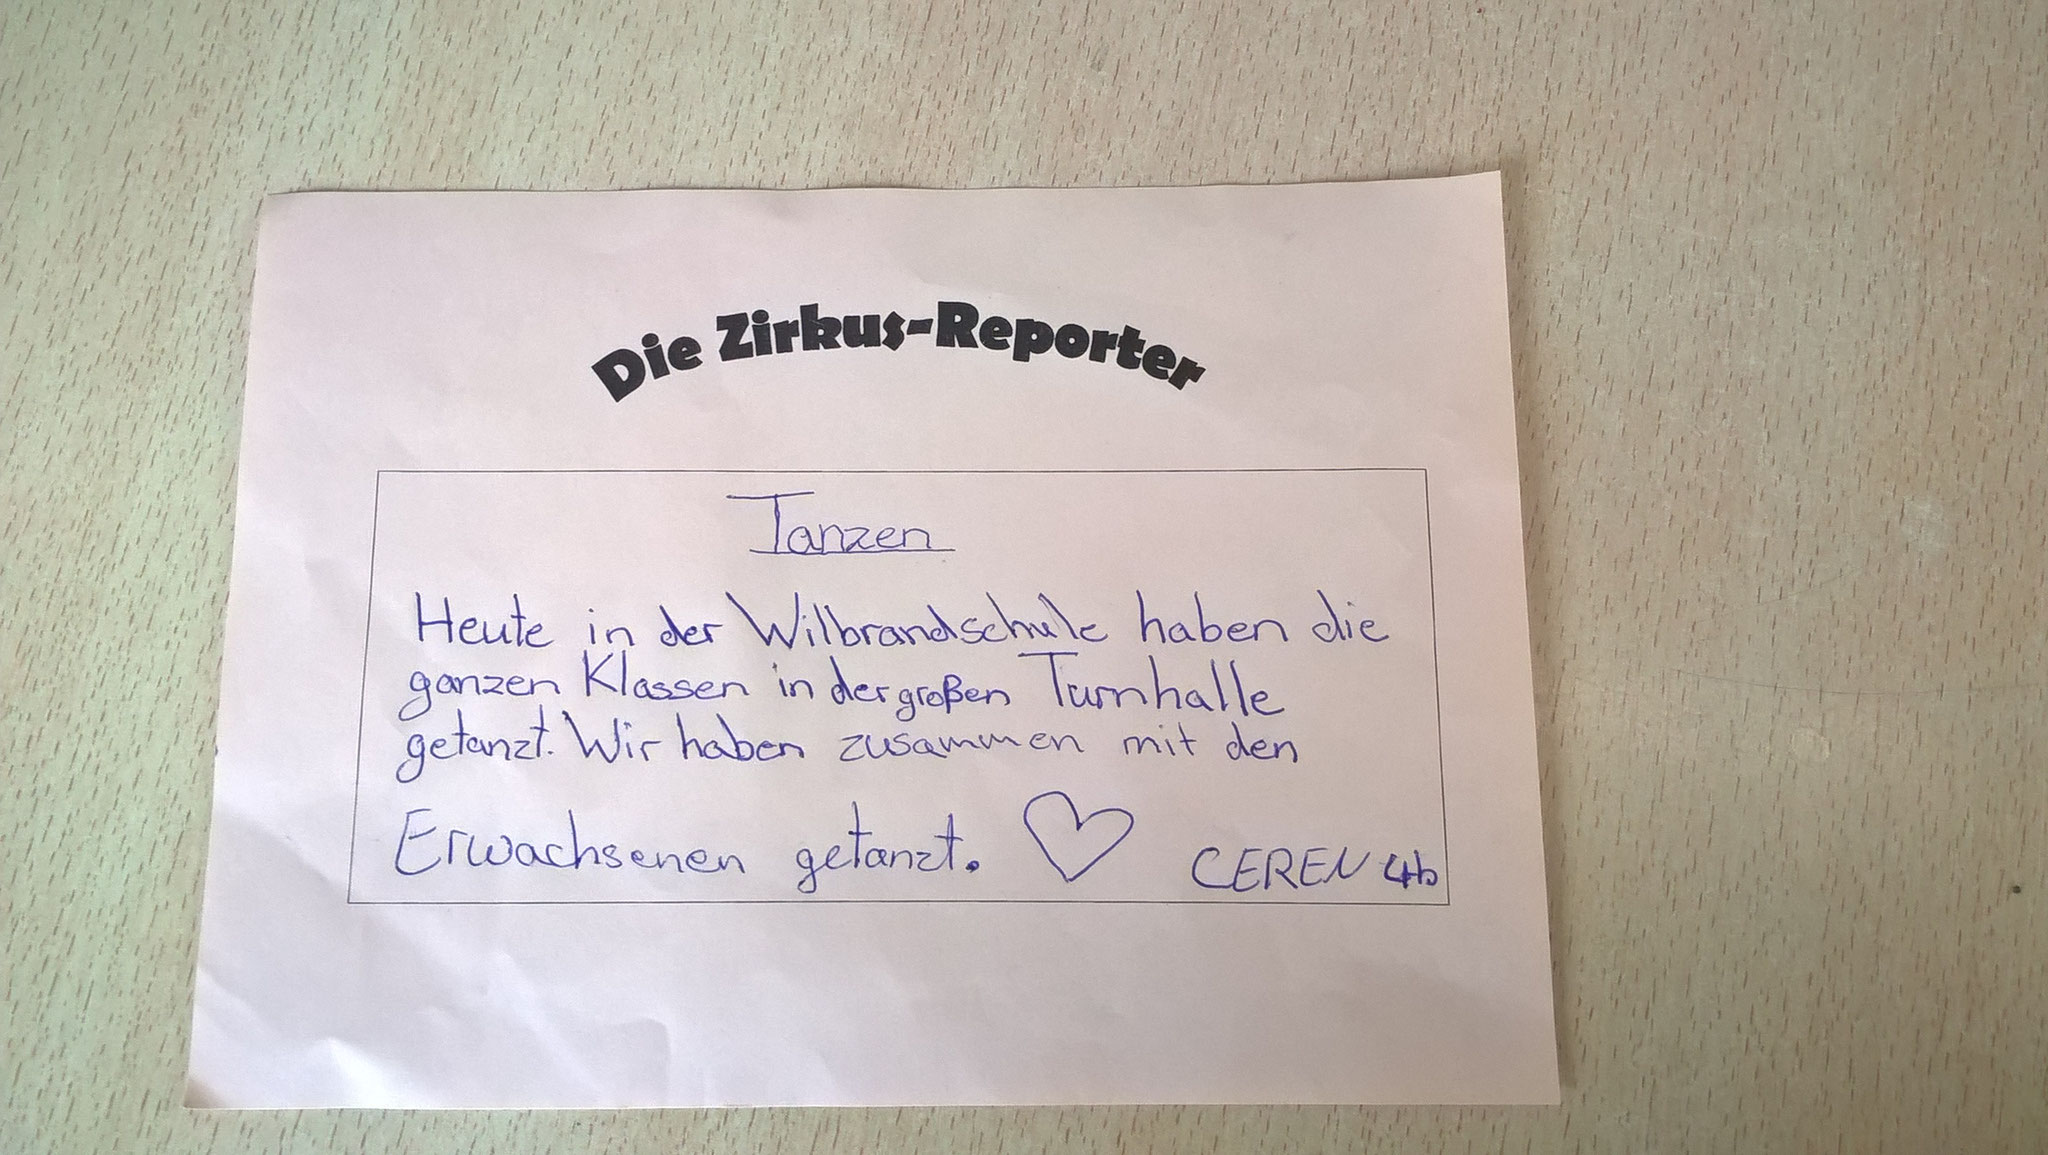 Die Zirkus-Reporter
Tanzen
Heute in der Wilbrandschule haben die
ganzen Klassen in der großen Turnhalle
getanzt. Wir haben zusammen mit den
Erwachsenen getanzt. ♡ CEREN 4b